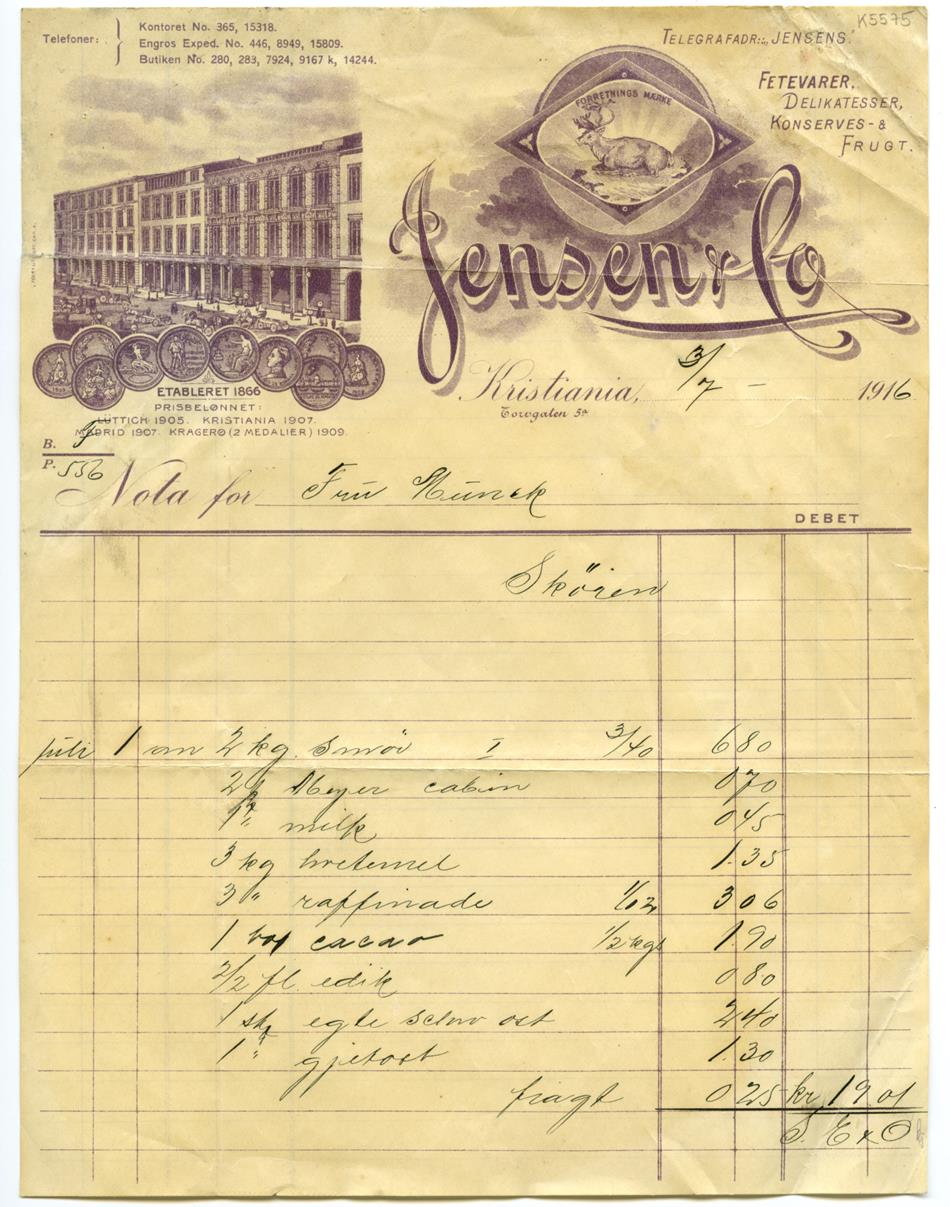 K5575
Telefoner:
Kontoret No. 365, 15318.
Engros Exped. No. 446, 8949, 15809.
Butiken No. 280, 283, 7924, 9167 k, 14244.
TELEGRAFADR.: „JENSENS."
FETEVARER,
DELIKATESSER,
KONSERVES- &
FRUGT.
FORRETNINGS MÆRKE
Jensen & Co
ETABLERET 1866
PRISBELØNNET:
LÜTTICH 1905. KRISTIANIA 1907.
MADRID 1907. KRAGERØ (2 MEDALIER) 1909.
Kristiania, 3/7 - 1916
Torvgaten 5a
B.
P. 556
Nota for Fru Munck
DEBET
Skören
juli 1 2 kg smör I 3/40 6 80
2 Meyer cabin 0 70
1 " milk 0 45
3 kg hvetemel 1.35
3 " raffinade 1/02 3 06
1 cacao 1/2 kgs 1.90
2/2 fl. edik 0 80
1 stk egte ost 2 40
1 " gjetost 1.30
fragt 0 25 kr 19 01
S. E & O